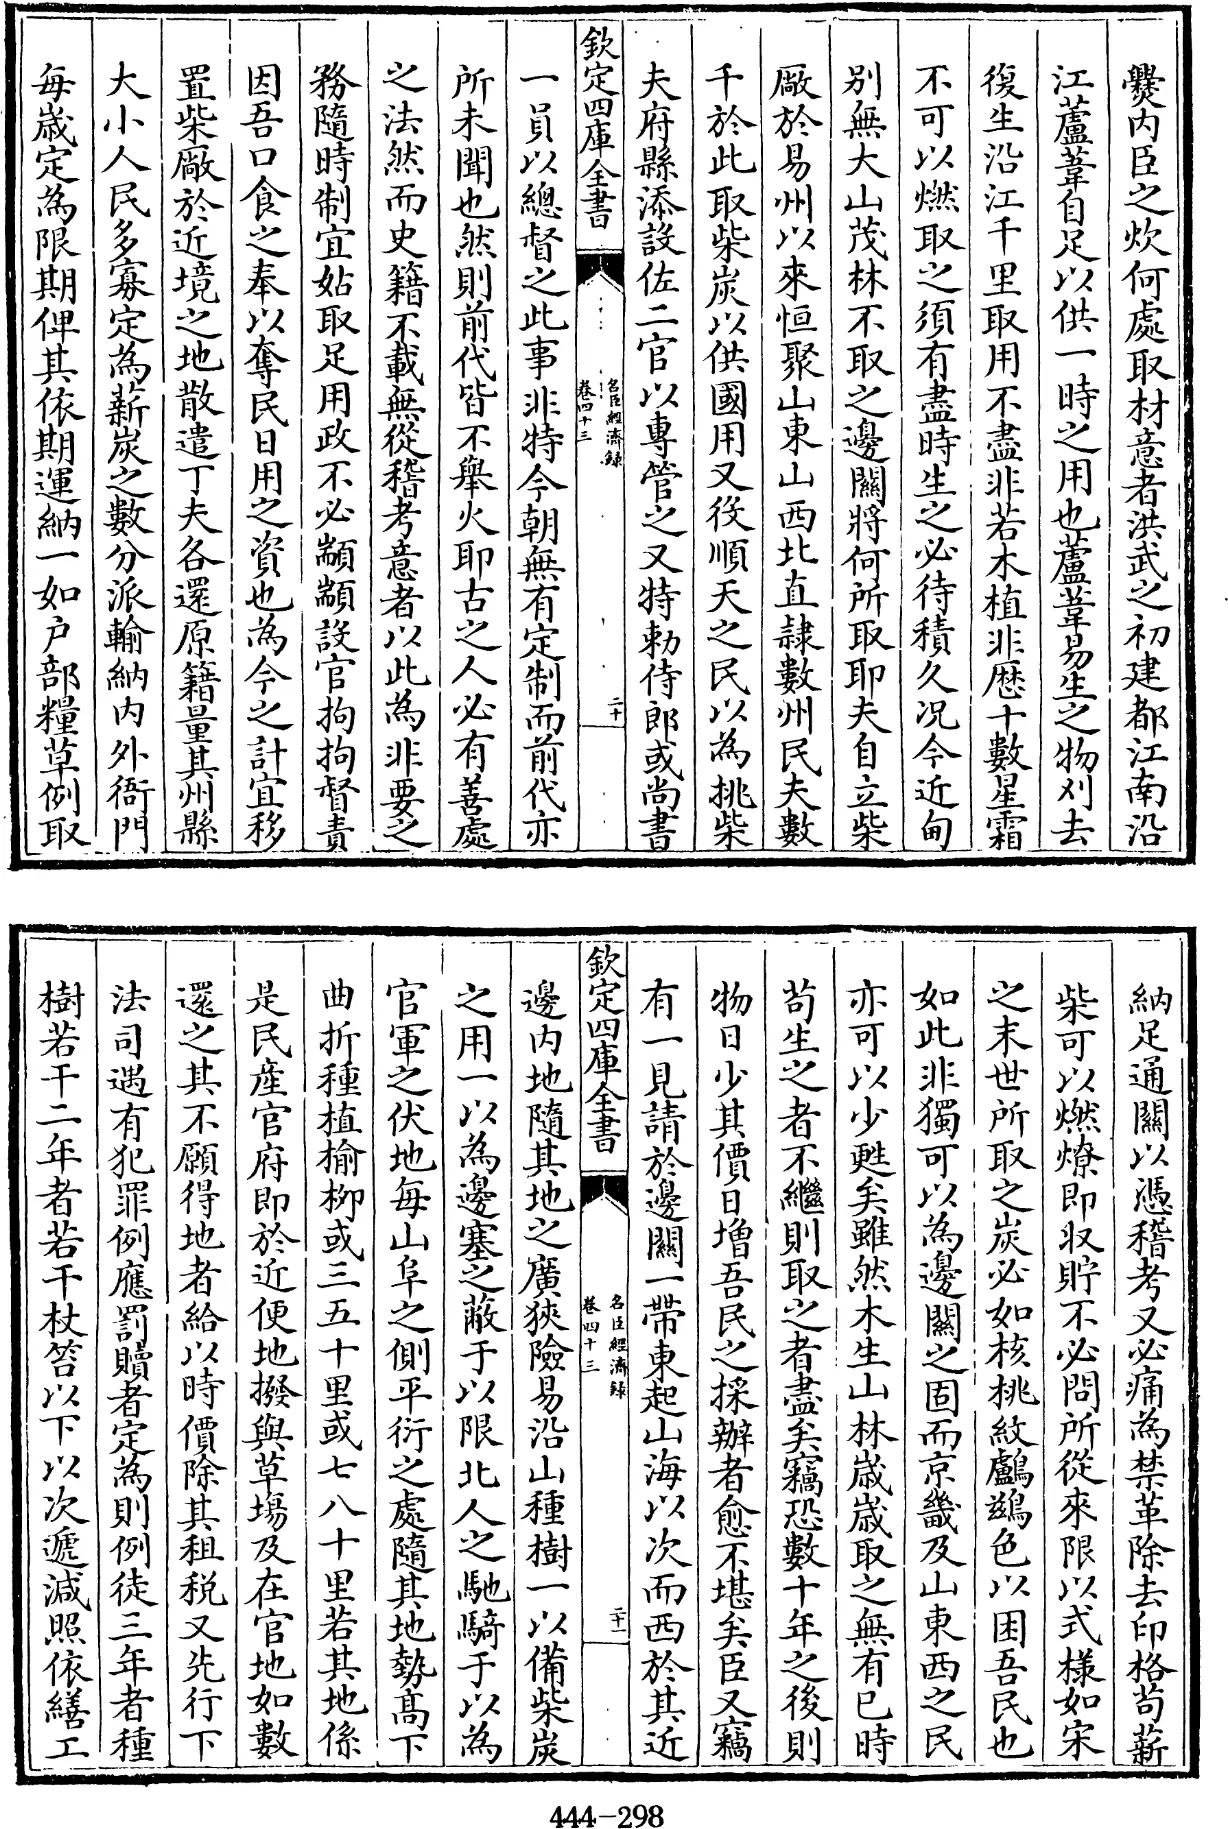 爨内臣之炊何處取材意者洪武之初建都江南沿
江蘆葦自足以供一時之用也蘆葦易生之物刈去
復生沿江千里取用不盡非若木植非歴十數星霜
不可以燃取之須有盡時生之必待積久况今近甸
别無大山茂林不取之邊關將何所取耶夫自立柴
厰於易州以來恒聚山東山西北直隷數州民夫數
千於此取柴炭以供國用又役順天之民以為挑柴
夫府縣添設佐二官以專管之又特勅侍郎或尚書
欽定四庫全書
名臣經濟録
卷四十三
二十
一員以總督之此事非特今朝無有定制而前代亦
所未聞也然則前代皆不舉火耶古之人必有善處
之法然而史籍不載無從稽考意者以此為非要之
務隨時制宜姑取足用政不必顓顓設官拘拘督責
因吾口食之奉以奪民日用之資也為今之計宜移
置柴厰於近境之地散遣丁夫各還原籍量其州縣
大小人民多寡定為薪炭之數分派輸納内外衙門
每歳定為限期俾其依期運納一如户部糧草例取
納足通關以憑稽考又必痛為禁革除去印格茍薪
柴可以燃燎即収貯不必問所從來限以式様如宋
之末世所取之炭必如核桃紋鸕鷀色以困吾民也
如此非獨可以為邊關之固而京畿及山東西之民
亦可以少甦矣雖然木生山林歳歳取之無有已時
茍生之者不繼則取之者盡矣竊恐數十年之後則
物日少其價日增吾民之採辦者愈不堪矣臣又竊
有一見請於邊關一帶東起山海以次而西於其近
欽定四庫全書
名臣經濟録
卷四十三
二十一
邊内地隨其地之廣狹險易沿山種樹一以備柴炭
之用一以為邊塞之蔽于以限北人之馳騎于以為
官軍之伏地每山阜之側平衍之處隨其地勢髙下
曲折種植榆柳或三五十里或七八十里若其地係
是民産官府即於近便地撥與草場及在官地如數
還之其不願得地者給以時價除其租税又先行下
法司遇有犯罪例應罰贖者定為則例徒三年者種
樹若干二年者若干杖笞以下以次遞減照依繕工
444-298